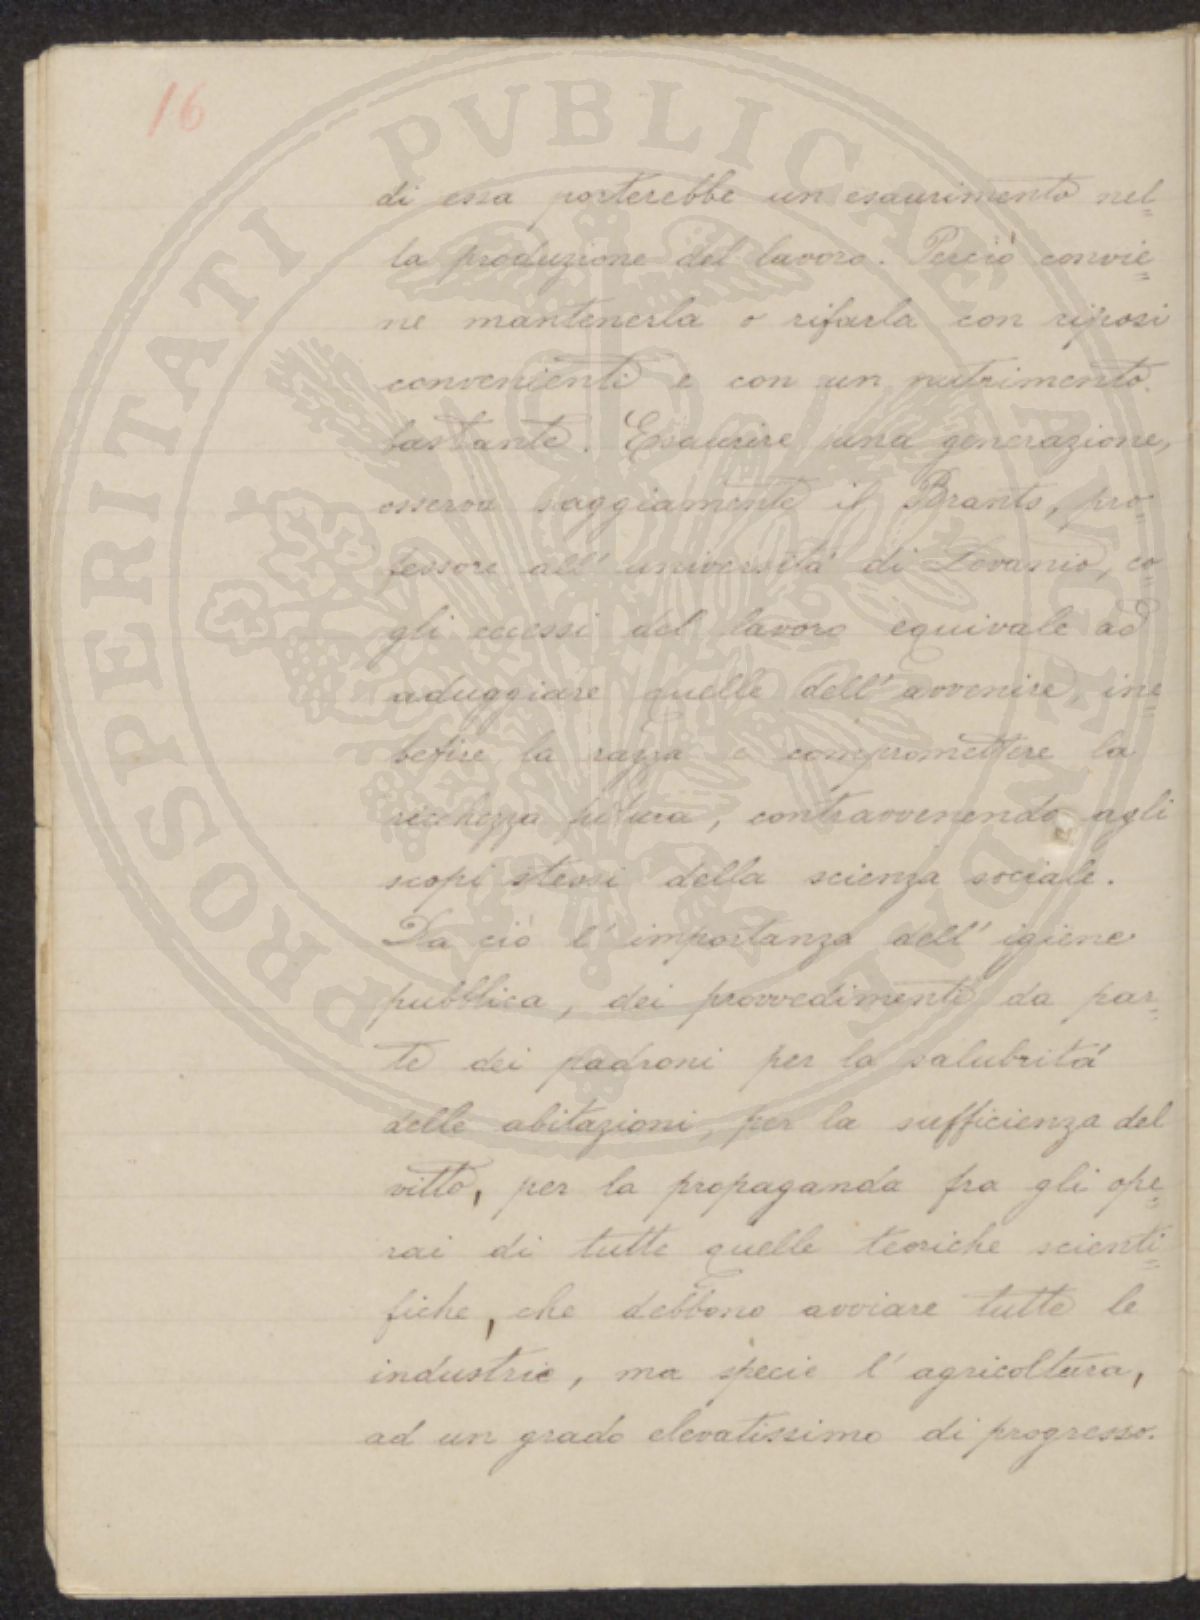 16
di essa porterebbe un esaurimento nel=
la produzione del lavoro. Perciò convie=
ne mantenerla o rifarla con riposi
convenienti e con un nutrimento
bastante. Esaurire una generazione,
osserva saggiamente il Brants, pro=
fessore all' università di Lovanio, co=
gli eccessi del lavoro equivale ad
aduggiare quelle dell' avvenire, ine=
betire la razza e compromettere la
ricchezza futura, contravvenendo agli
scopi stessi della scienza sociale.
Da ciò l' importanza dell' igiene
pubblica, dei provvedimenti da par=
te dei padroni per la salubrità
delle abitazioni, per la sufficienza del
vitto, per la propaganda fra gli ope=
rai di tutte quelle teoriche scienti=
fiche, che debbono avviare tutte le
industrie, ma specie l' agricoltura,
ad un grado elevatissimo di progresso.
PROSPERITATI PVBLICAE AVGENDAE